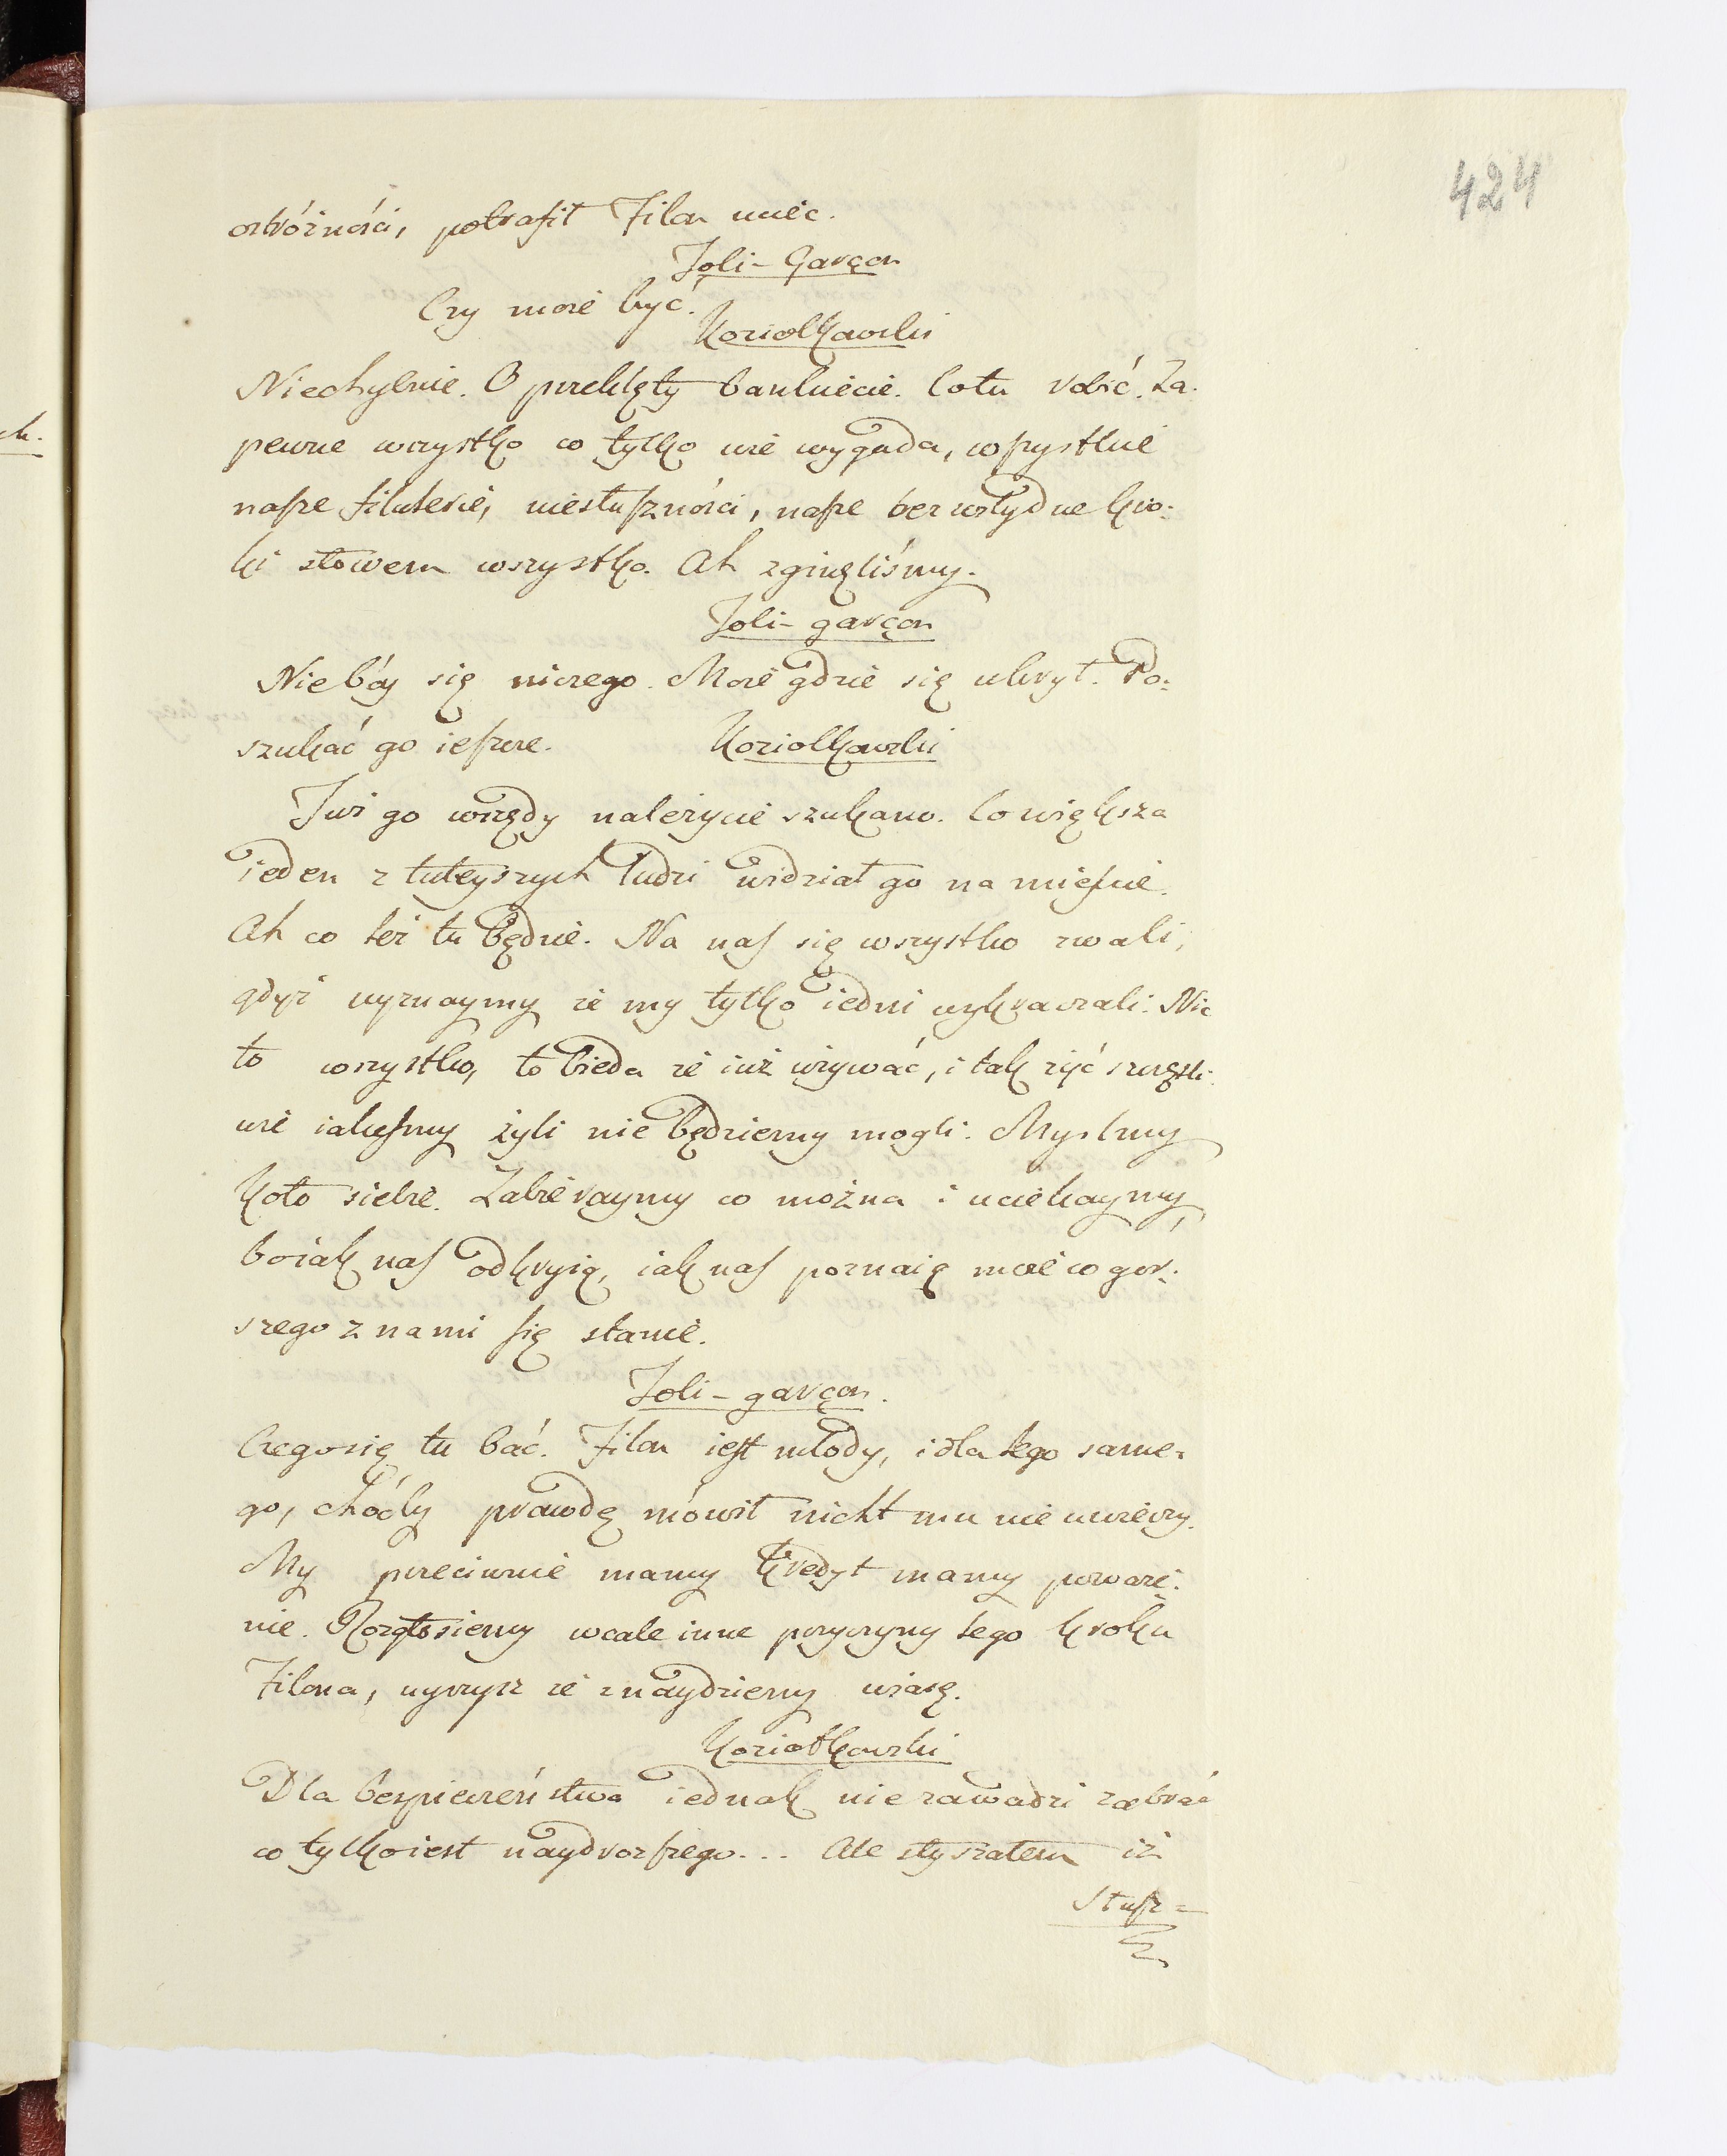 424
ostróżności, potrafił Filon uciec.
Joli-Garçon
Czy może być.
Koziołkowski
Niechybnie. O przeklęty bankiecie. Cotu robić. Za-
pewne wszystko co tylko wie wygada, wszystkie
nasze filuterie, niesłuszności, nasze bezwstydne kro-
ki słowem wszystko. Ah zginęliśmy.
Joli-garçon
Niebój się niczego. Może gdzie się ukrył. Po-
szukać go ieszcze.
Koziołkowski
Już go wszędy należycie szukano. Co większa
ieden z tuteyszych ludzi widział go na mieście.
Ah co też tu będzie. Na nas się wszystko zwali,
gdyż wyznaymy że my tylko iedni wykraczali. Nie
to wszystko, to bieda że iuż używać, i tak żyć szczęśli-
wie iakeśmy żyli nie będziemy mogli. Myślmy
koło siebie. Zabieraymy co można i uciekaymy,
boiak nas odkryią, iak nas poznaią może co gor-
szego znami się stanie.
Joli-garçon.
Czegosię tu bać. Filon iest młody, idlatego same-
go, choćby prawdę mówił nicht mu nie uwierzy.
My przeciwnie mamy kredyt mamy poważe-
nie. Rozgłosiemy wcale inne przyczyny tego kroku
Filona, uyrzysz że znaydziemy wiarę.
Koziołkowski
Dla bezpieczeństwa iednak nie zawadzi zabrać
co tylkoiest naydroższego... Ale słyszałem iż
Słusz=